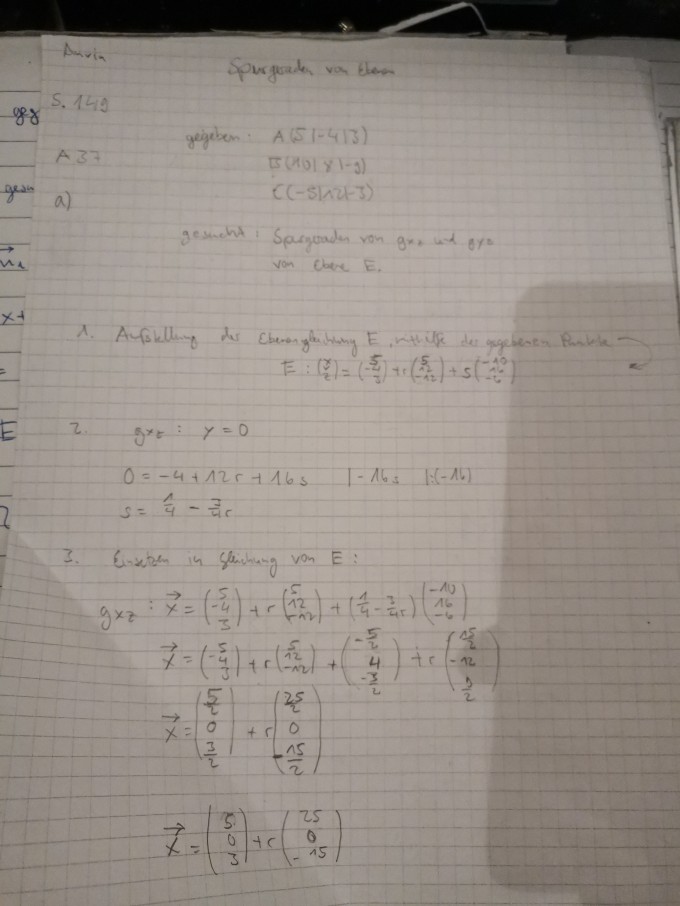 Spurgeraden von Ebenen
S. 149
gegeben: A(5|-4|3)
A 37
B(10|8|-9)
a)
C(-5|12|-3)
gesucht: Spurgeraden von gxz und gyz
von Ebene E.
1. Aufstellung der Ebenengleichung E, mithilfe der gegebenen Punkte
E: (x y z) = (5 -4 3) + r(5 12 -12) + s(-10 16 -6)
2. gxz: y = 0
0 = -4 + 12r + 16s |-16s |:(-16)
s = 1/4 - 3/4r
3. Einsetzen in Gleichung von E:
gxz: x⃗ = (5 -4 3) + r(5 12 -12) + (1/4 - 3/4r)(-10 16 -6)
x⃗ = (5 -4 3) + r(5 12 -12) + (-5/2 4 -3/2) + r(15/2 -12 9/2)
x⃗ = (5/2 0 3/2) + r(25/2 0 -15/2)
x⃗ = (5 0 3) + r(25 0 -15)